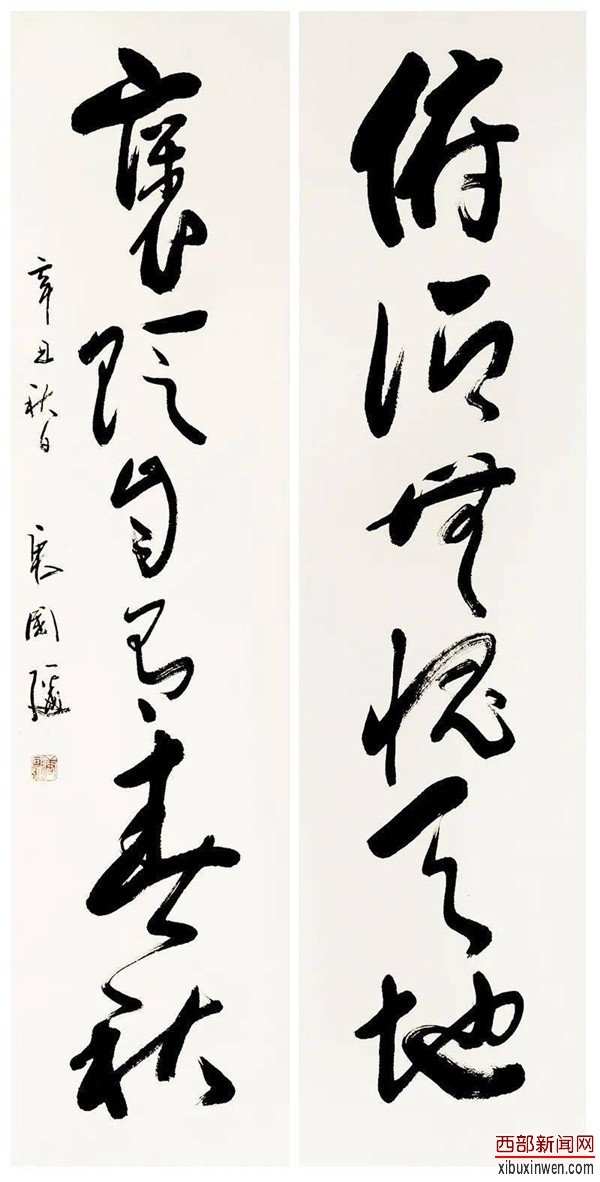 俯仰無愧天地
褒貶自有春秋
辛丑秋日 袁國疆
西部新闻网
xibuxinwen.com